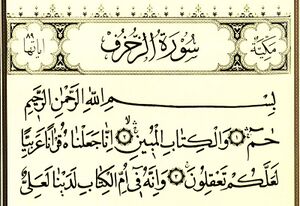 مكية سورة الزخرف آياتها ٨٩
بِسْمِ اللَّهِ الرَّحْمَٰنِ الرَّحِيمِ
حمٓ ۝ وَالْكِتَابِ الْمُبِينِ ۝ إِنَّا جَعَلْنَاهُ قُرْآنًا عَرَبِيًّا
لَعَلَّكُمْ تَعْقِلُونَ ۝ وَإِنَّهُ فِي أُمِّ الْكِتَابِ لَدَيْنَا لَعَلِيٌّ